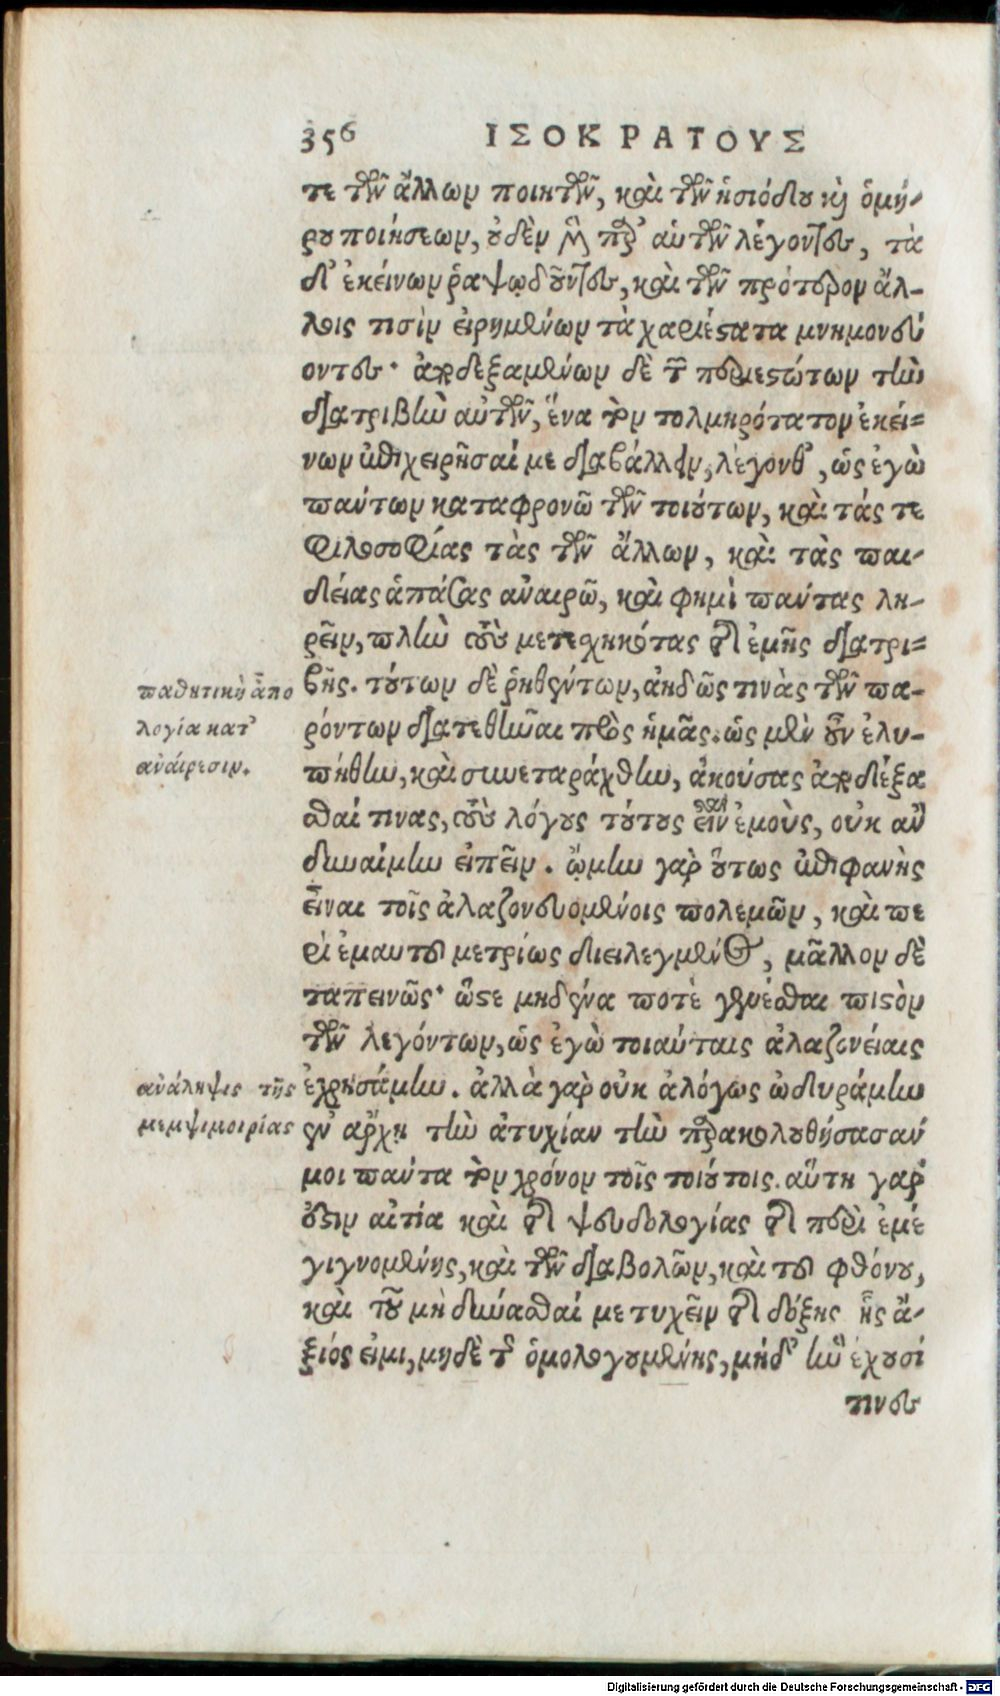 356 ΙΣΟΚΡΑΤΟΥΣ
τε τῶν ἄλλων ποιητῶν, καὶ τῶν ἡσιόδου καὶ ὁμή-
ρου ποιήσεων, οὐδὲν μὲν παρ' αὑτῶν λέγοντες, τὰ
δ' ἐκείνων ῥαψῳδοῦντες, καὶ τῶν πρότερον ἄλ-
λοις τισὶν εἰρημένων τὰ χαριέστατα μνημονεύ
οντες· ἀποδεξαμένων δὲ τῶν περιεστώτων τὴν
διατριβὴν αὐτῶν, ἕνα τὸν τολμηρότατον ἐκεί=
νων ἐπιχειρῆσαί με διαβάλλειν, λέγονθ', ὡς ἐγὼ
πάντων καταφρονῶ τῶν τοιούτων, καὶ τάς τε
φιλοσοφίας τὰς τῶν ἄλλων, καὶ τὰς παι-
δείας ἁπάσας ἀναιρῶ, καὶ φημὶ πάντας λη-
ρεῖν, πλὴν τοὺς μετεχηκότας τῆς ἐμῆς διατρι=
βῆς. τούτων δὲ ῥηθέντων, ἀηδῶς τινὰς τῶν πα-
ρόντων διατεθῆναι πρὸς ἡμᾶς. ὡς μὲν οὖν ἐλυ-
πήθην, καὶ συνεταράχθην, ἀκούσας ἀποδέξα
σθαί τινας, τοὺς λόγους τούτους εἶναι ἐμοὺς, οὐκ ἂν
δυναίμην εἰπεῖν. ᾤμην γὰρ οὕτως ἐπιφανὴς
εἶναι τοῖς ἀλαζονευομένοις πολεμῶν, καὶ πε
ρὶ ἐμαυτοῦ μετρίως διειλεγμένος, μᾶλλον δὲ
ταπεινῶς· ὥστε μηδένα ποτὲ γενέσθαι πιστὸν
τῶν λεγόντων, ὡς ἐγὼ τοιαύταις ἀλαζονείαις
ἐχρησάμην. ἀλλὰ γὰρ οὐκ ἀλόγως ὠδυράμην
ἐν ἀρχῇ τὴν ἀτυχίαν τὴν παρακολουθήσασάν
μοι πάντα τὸν χρόνον τοῖς τοιούτοις. αὕτη γάρ
ἐστιν αἰτία καὶ τῆς ψευδολογίας τῆς περὶ ἐμέ
γιγνομένης, καὶ τῶν διαβολῶν, καὶ τοῦ φθόνου,
καὶ τοῦ μὴ δύνασθαί με τυχεῖν τῆς δόξης ἧς ἄ-
ξιός εἰμι, μηδὲ τῆς ὁμολογουμένης, μήδ' ἣν ἔχουσί
τινες
παθητικὴ ἀπο
λογία κατ'
ἀναίρεσιν.
ἀνάληψις τῆς
μεμψιμοιρίας
Digitalisierung gefördert durch die Deutsche Forschungsgemeinschaft - DFG